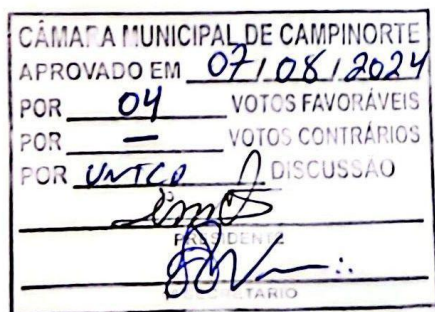 CÂMARA MUNICIPAL DE CAMPINORTE
APROVADO EM 07/08/2024
POR 04 VOTOS FAVORÁVEIS
POR — VOTOS CONTRÁRIOS
POR UNICO DISCUSSÃO
PRESIDENTE
SECRETARIO